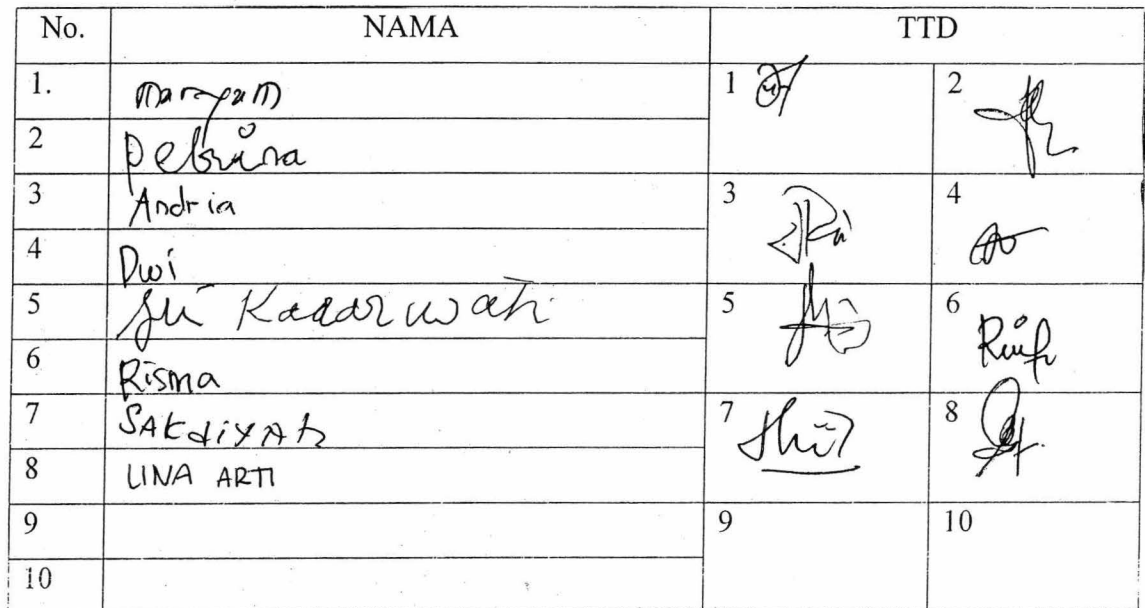 No. NAMA TTD
1. Maryam 1 2
2 Pebrina
3 Andria 3 4
4 Dwi
5 Sri Kadarwati 5 6
6 Risma
7 SAKdiYAh 7 8
8 LINA ARTI
9 9 10
10